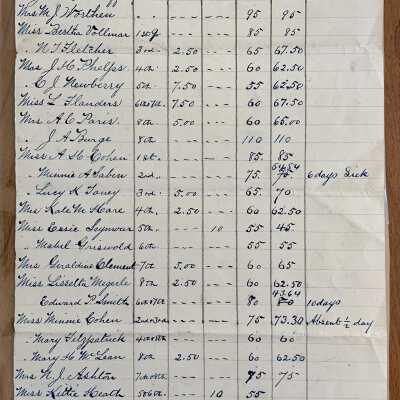 Mrs M. J. Worthen . . - - - - - - 95 95
Miss Bertha Vollmar 1st - - - - - - 85 85
" N. T. Fletcher 3rd 2.50 - - - 65 67.50
Mrs J. H. Phelps 4th 2.50 - - - 60 62.50
" C. J. Newberry 5th 7.50 - - - 55 62.50
Miss L. Flanders 6th&7th 7.50 - - - 60 67.50
Mrs A. C. Paris 8th 5.00 - - - 60 65.00
J. A. Burge 8th - - - - - - 110 110
Miss A. H. Cohen 1st - - - - - - 85 85
" Minnie A Saben 2nd - - - - - - 75 54.54 75 6 days Sick
" Lucy K. Toney 3rd 5.00 - - - 65 70
Mrs Kate M. Hoare 4th 2.50 - - - 60 62.50
Miss Essie 5th - - - 10 55 45
" Mabel Griswold 6th - - - - - - 55 55
Mrs Geraldine Clement 7th 5.00 - - - 60 65
Miss Lissetta Megerle 8th 2.50 - - - 60 62.50
Edward P. Smith 6th&7th - - - - - - 80 43.64 80 10 days
Miss Minnie Cohen 2nd&3rd - - - - - - 75 73.30 Absent ½ day
Mary Fitzpatrick - - - - - - 60 60
Mary H. McLean 8th 2.50 - - - 60 62.50
Mrs N. J. Ashton - - - - - - 75 75
Miss Kittie Heath 5&6th - - - 10 55